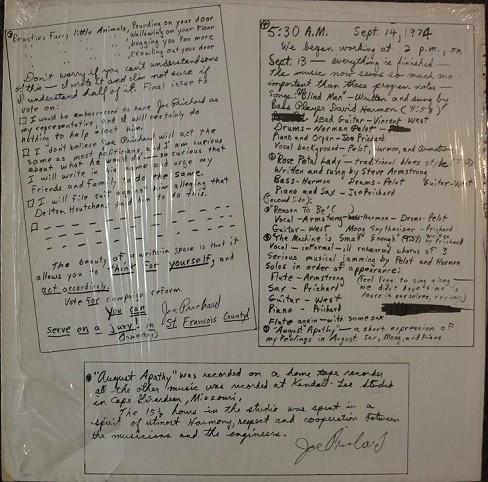 Beauties Furry little Animals, Pounding on your door
Wallowing on your Floor
begging you for more
crawling out your door
Don't worry if you can't understand some
of this - I wrote it and I'm not sure if
I understand half of it. Final issue to
vote on:
□ I would be embarrassed to have Joe Prichard as
my representative, and I will certainly do
nothing to help elect him.
□ I don't believe Joe Prichard will act the
same as most politicians, and I am curious
about what he would do - so curious that
I will write in his name and urge my
Friends and Family to do the same.
□ I will file suit against him alleging that
Delton Houtchens paid him to do this.
□
The beauty of a write-in space is that it
allows you to think for yourself, and
act accordingly.
Vote for campaign reform
You can
serve on a jury in
(someday)
Joe Prichard
St. Francois County
5:30 A.M. Sept. 14, 1974
We began working at 2 p.m., on
Sept. 13 - everything is finished -
the music now seems so much more
important than these program notes -
Songs: "Blind Man" - Written and sung by
Bass Player David Harmon
Lead Guitar - Vincent West
Drums - Norman Pelot
Piano and Organ - Joe Prichard
Vocal background - Pelot, Harmon, and Armstrong
Rose Petal Lady - traditional blues style
Written and sung by Steve Armstrong
Bass - Harmon Drums - Pelot Guitar - West
Piano and Sax - Joe Prichard
(second side):
"Reason To Be"
Vocal - Armstrong Bass - Harmon - Drums - Pelot
Guitar - West Moog Synthesizer - Prichard
"The Machine is Small Enough" by Prichard
Vocal - informal - ill rehearsed chorus of 3
Serious musical jamming by Pelot and Harmon
Solos in order of appearance:
Flute - Armstrong
Sax - Prichard
Guitar - West
Piano - Prichard
Flute again - with some sax
(Feel free to sing along -
we didn't
ourselves, anyway)
"August Apathy" - a short expression of
my feelings in August. Sax, Moog, and Piano
"August Apathy" was recorded on a home tape recorder
all the other music was recorded at Kendall-Lee Studios
in Cape Girardeau, Missouri.
The 15½ hours in the studio was spent in a
spirit of utmost Harmony, respect and cooperation between
the musicians and the engineers.
Joe Prichard